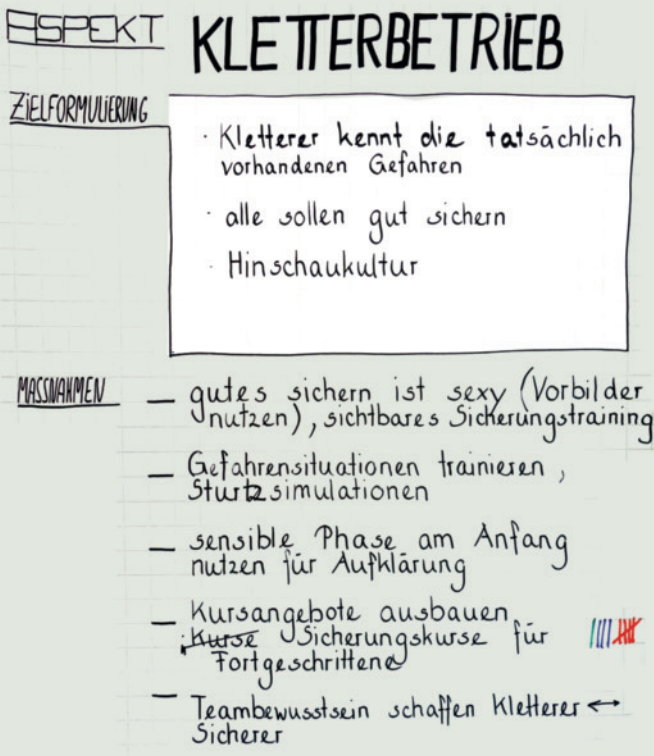 ASPEKT KLETTERBETRIEB
ZIELFORMULIERUNG
· Kletterer kennt die tatsächlich
vorhandenen Gefahren
· alle sollen gut sichern
· Hinschaukultur
MASSNAHMEN
— gutes sichern ist sexy (Vorbilder
nutzen), sichtbares Sicherungstraining
— Gefahrensituationen trainieren,
Sturtzsimulationen
— sensible Phase am Anfang
nutzen für Aufklärung
— Kursangebote ausbauen,
; Kurse Sicherungskurse für
Fortgeschrittene
— Teambewusstsein schaffen Kletterer ↔
Sicherer